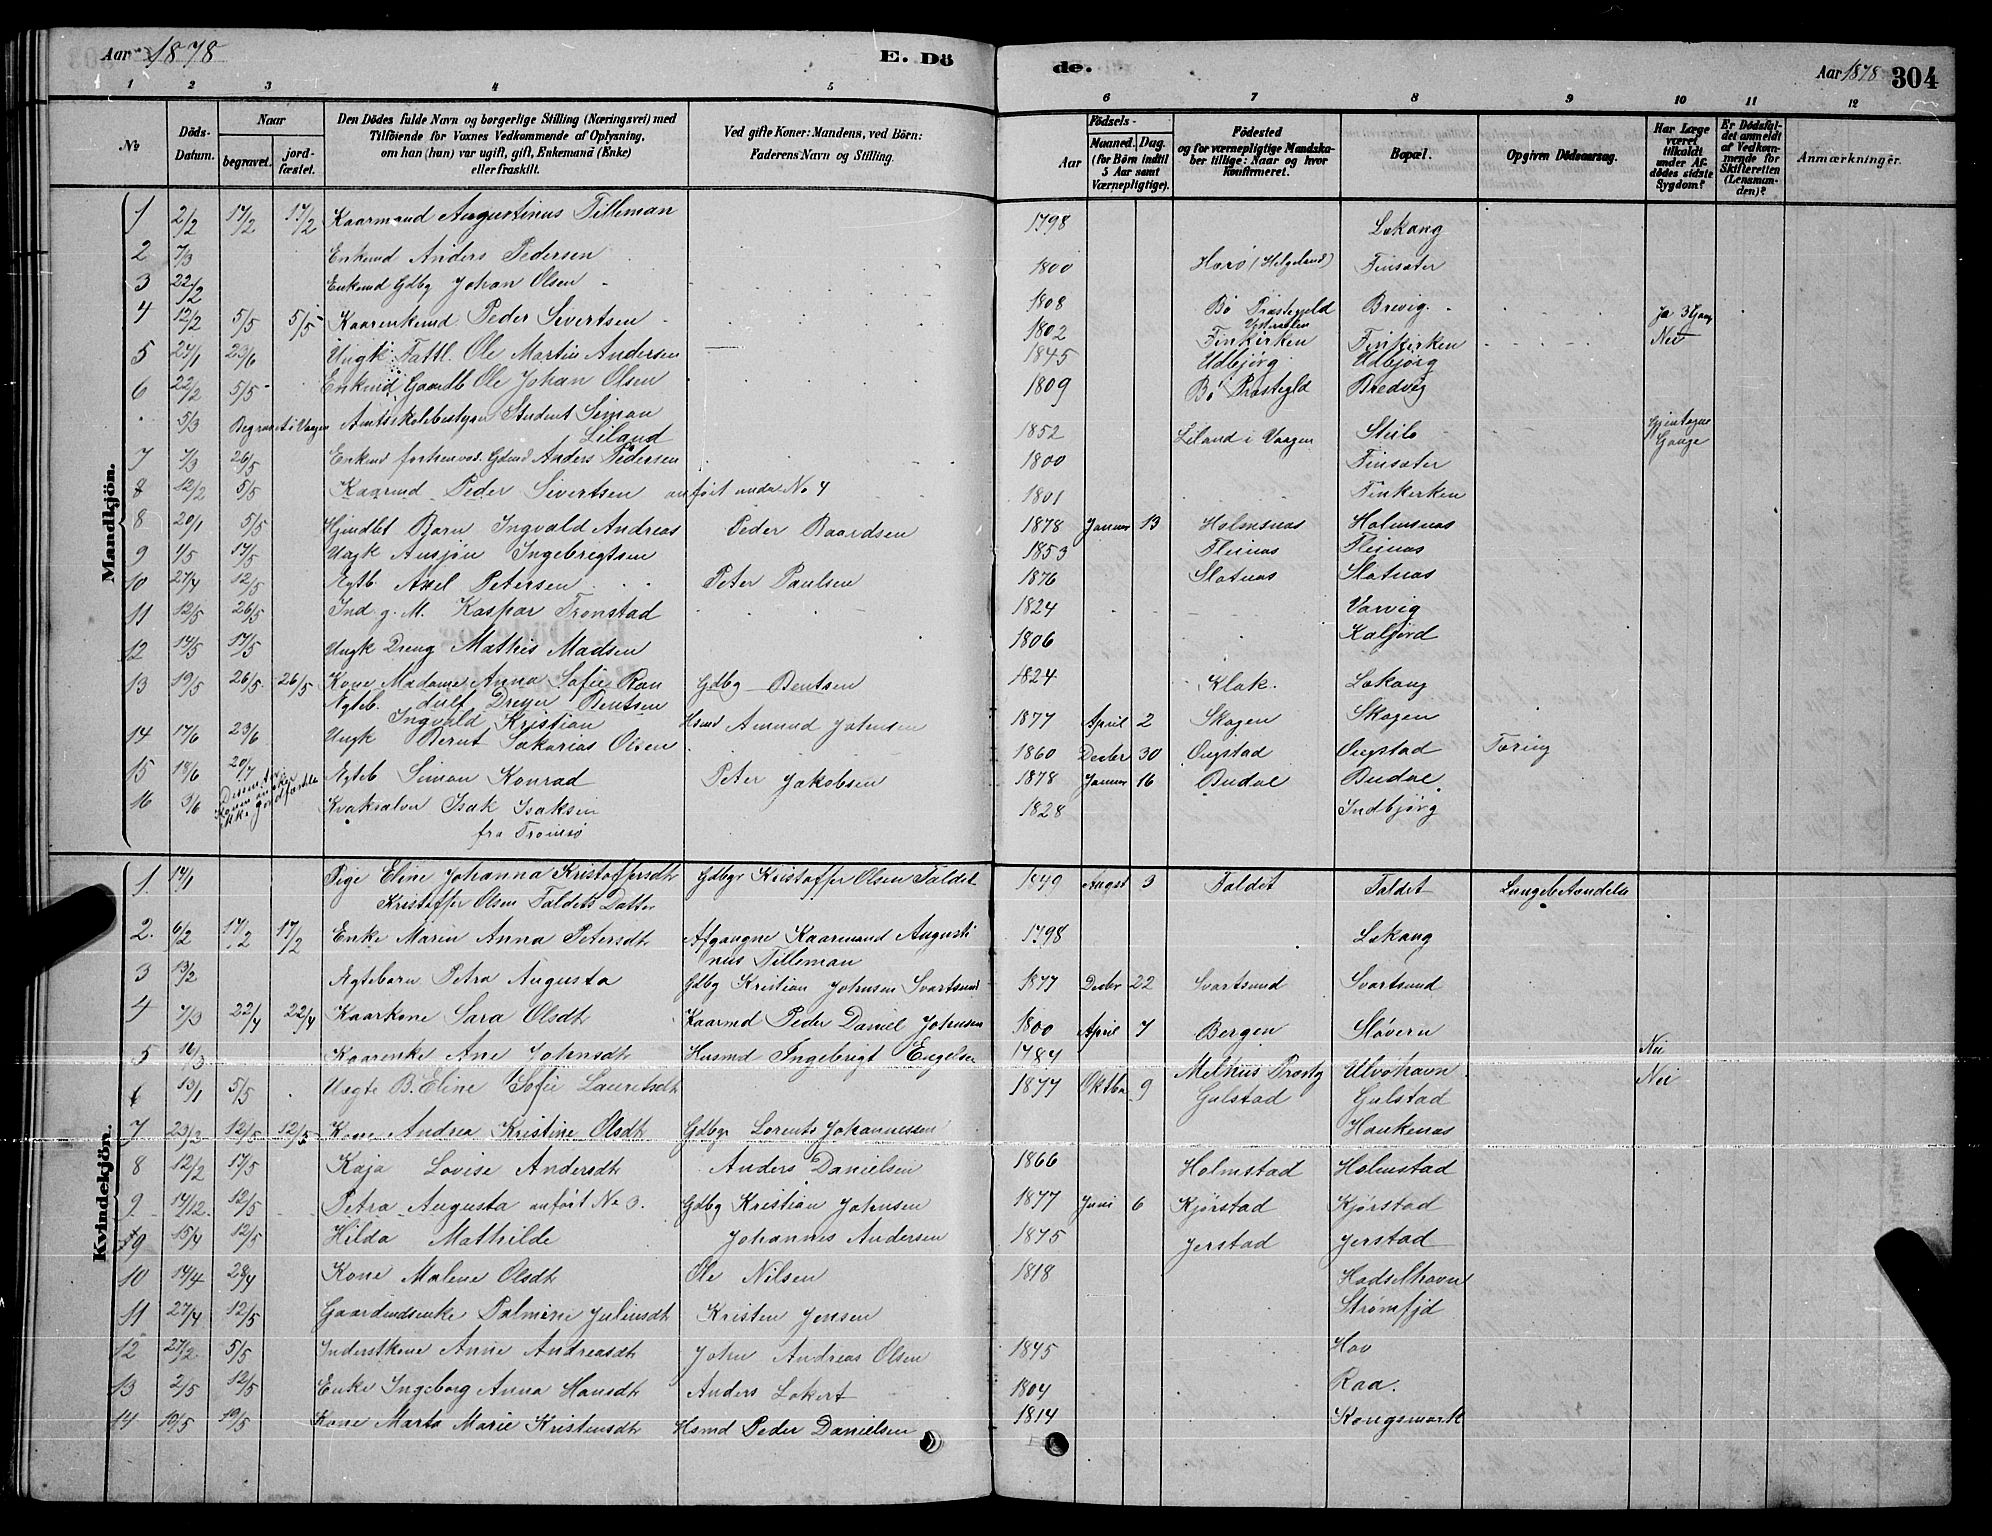 Aar 1878 E. Dö de. Aar 1878 304
1 2 3 4 5 6 7 8 9 10 11 12
No
Döds-Datum.
Naar
begravet. jord-fæstet.
Den Dödes fulde Navn og borgerlige Stilling (Næringsvei) med
Tilföiende for Voxnes Vedkommende af Oplysning,
om han (hun) var ugift, gift, Enkemand (Enke)
eller fraskilt.
Ved gifte Koner: Mandens, ved Börn:
Faderens Navn og Stilling.
Födsels-
Aar
Maaned. Dag.
(for Börn indtil
5 Aar samt
Værnepligtige).
Födested
og for værnepligtige Mandska-
ber tillige: Naar og hvor
konfirmeret.
Bopæl.
Opgiven Dödsaarsag.
Har Læge
været
tilkaldt
under Af-
dödes sidste
Sygdom?
Er Dödsfal-
det anmeldt
af Vedkom-
mende for
Skifteretten
(Lensman-
den)?
Anmærkninger.
Mandkjön.
1 2/2 17/2 17/2 Kaarmand Augustinus Tilleman 1798 Lekang
2 7/3 Enkemd Anders Pedersen 1800 Herø (Helgeland) Finsæter
3 22/2 Enkemd Gdbg Johan Olsen 1808 Bø Præstegjeld Brevig Ja 3 Gang
4 12/2 5/5 5/5 Kaarenkemd Peder Sivertsen 1802 Vesteraalen Finkirken Finkirken Nei
5 24/1 23/6 Ungk. Fattl. Ole Martin Andersen 1845 Udbjørg Udbjørg
6 22/2 5/5 Enkemd Gaardb Ole Johan Olsen 1809 Bø Præstegld Bredvig
5/3 Begravet i Vaagen Amtsskolebestyrer Student Simon
Liland 1852 Liland i Vaagen Steilo Gjentagne Gange
7 7/3 26/5 Enkemd forhenvæ. Gdmd Anders Pedersen 1800 Finsæter
8 12/2 5/5 Kaarmd Peder Sivertsen anført under No 4 1801 Finkirken
8 20/1 5/5 Hjmdbt Barn Ingvald Andreas Peder Baardsen 1878 Januar 13 Holmsnæs Holmsnæs
9 4/5 17/5 Ungk Ansjøn Ingebregtsen 1853 Fleinæs Fleinæs
10 27/4 12/5 Ægtb. Axel Petersen Peter Paulsen 1876 Slotnæs Slotnæs
11 12/5 26/5 Ind. g. M. Kaspar Tronstad 1824 Varvig
12 14/5 17/5 Ungk Dreng Mathis Madsen 1806 Kaljord
13 19/5 26/5 26/5 Kone Madame Anna Sofie Ran Gdbg Bentsen 1824 Klak. Lekang
Ægteb. dulf Dreyer Bentsen
Ingvald Kristian Hsmd Amund Johnsen 1877 April 2 Skagen Skagen
14 17/6 23/6 Ungk Bernt Sakarias Olsen 1860 Decbr 30 Ongstad Ongstad Tæring
15 18/6 20/7 Ægteb Simon Konrad Peter Jakobsen 1878 Januar 16 Budal Budal
16 3/6 Kvaksalver Isak Isaksen 1828 Indbjørg
fra Tromsø
Kvindekjön.
1 17/1 Pige Eline Johanna Kristoffersdtr Gdbgr Kristoffer Olsen Faldet 1849 August 3 Faldet Faldet
Kristoffer Olsen Faldets Datter
2. 6/2 17/2 17/2 Enke Maren Anna Petersdtr Afgangne Kaarmand Augusti 1798 Lekang
nus Tilleman
3 13/2 Ægtebarn Petra Augusta Gdbg Kristian Johnsen Svartsund 1877 Decbr 22 Svartsund Svartsund
4 7/3 22/4 22/4 Kaarkone Sara Olsdtr Kaarmd Peder Daniel Johnsen 1800 April 7 Bergen Støvern
5 16/3 Kaarenke Ane Johnsdtr Husmd Ingebrigt Engelsen 1784 Melhus Præstg Ulvøhavn Nei
6 13/1 5/5 Uægte B. Eline Sofie Lauritsdtr 1877 Oktbr 9 Gulstad Gulstad Nei
7 23/3 12/5 12/5 Kone Andrea Kristine Olsdtr Gdbgr Lorents Johannessen Haukenæs
8 12/2 17/5 Kaja Lovise Andersdtr Anders Danielsen 1866 Holmstad Holmstad
9 14/12 12/5 Petra Augusta anført No 3. Gdbg Kristian Johnsen 1877 Juni 6 Kjørstad Kjørstad
9 15/4 12/5 Hilda Mathilde Johannes Andersen 1875 Jerstad Jerstad
10 14/4 28/4 Kone Malene Olsdtr Ole Nilsen 1818 Hadselhavn
11 27/4 12/5 Gaardmdsenke Palmine Juliusdtr Kristen Jensen Strømfjd
12 27/2 5/5 Inderstkone Anne Andreasdtr John Andreas Olsen 1845 Hov
13 2/5 12/5 Enke Ingeborg Anna Hansdtr Anders Lokert 1804 Raa.
14 10/5 19/5 Kone Marta Marie Kristensdtr Hsmd Peder Danielsen 1814 Kongsmark